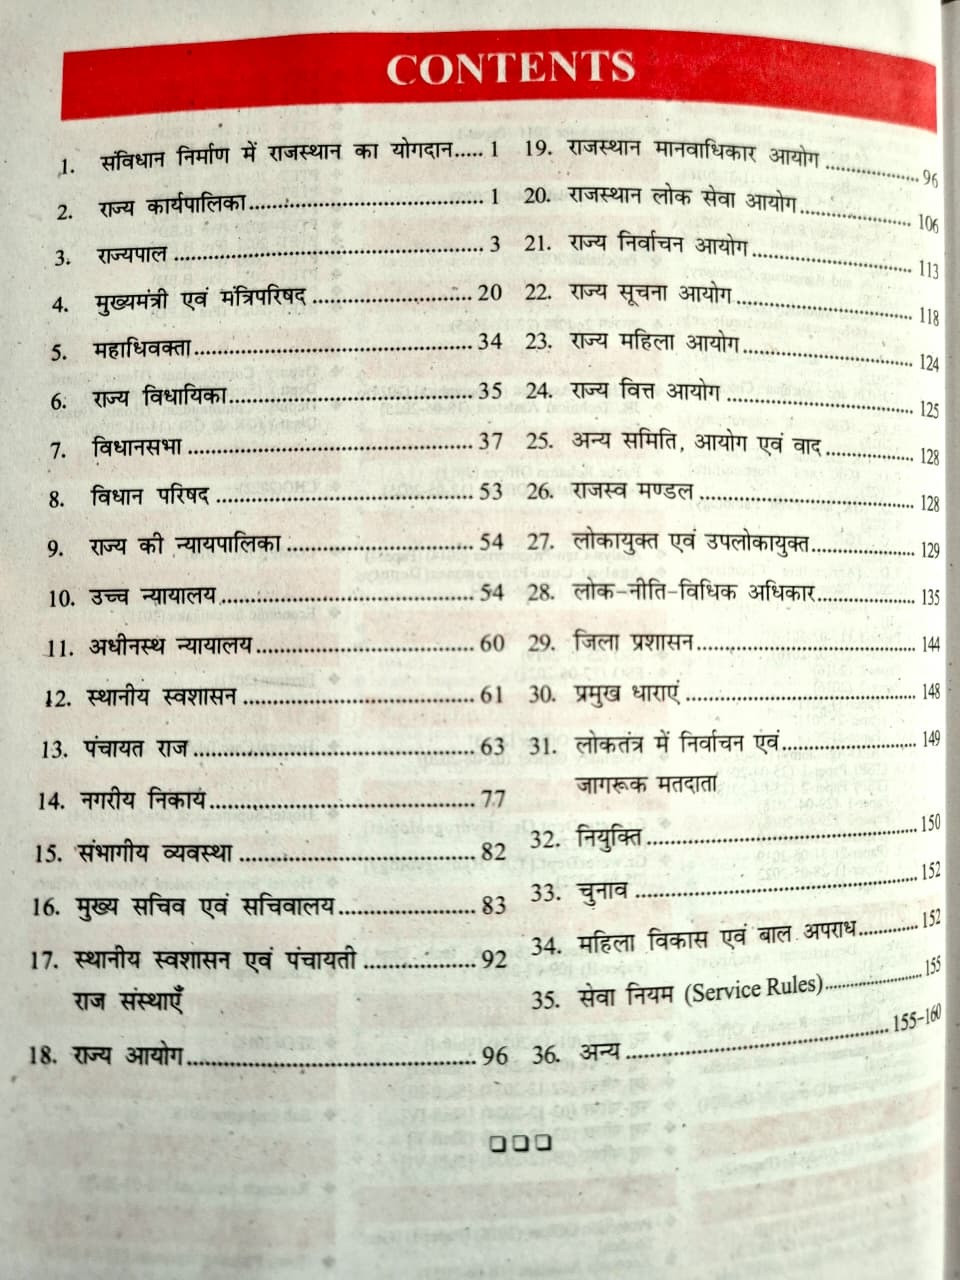 CONTENTS
1. संविधान निर्माण में राजस्थान का योगदान..... 1
2. राज्य कार्यपालिका.................................. 1
3. राज्यपाल ............................................. 3
4. मुख्यमंत्री एवं मंत्रिपरिषद ....................... 20
5. महाधिवक्ता......................................... 34
6. राज्य विधायिका................................... 35
7. विधानसभा .......................................... 37
8. विधान परिषद ..................................... 53
9. राज्य की न्यायपालिका .......................... 54
10. उच्च न्यायालय..................................... 54
11. अधीनस्थ न्यायालय............................... 60
12. स्थानीय स्वशासन ................................. 61
13. पंचायत राज ........................................ 63
14. नगरीय निकाय...................................... 77
15. संभागीय व्यवस्था ................................. 82
16. मुख्य सचिव एवं सचिवालय.................... 83
17. स्थानीय स्वशासन एवं पंचायती ................ 92
राज संस्थाएँ
18. राज्य आयोग......................................... 96
19. राजस्थान मानवाधिकार आयोग ............... 96
20. राजस्थान लोक सेवा आयोग.................. 106
21. राज्य निर्वाचन आयोग ......................... 113
22. राज्य सूचना आयोग............................ 118
23. राज्य महिला आयोग........................... 124
24. राज्य वित्त आयोग .............................. 125
25. अन्य समिति, आयोग एवं वाद............... 128
26. राजस्व मण्डल .................................. 128
27. लोकायुक्त एवं उपलोकायुक्त................. 129
28. लोक-नीति-विधिक अधिकार................ 135
29. जिला प्रशासन................................... 144
30. प्रमुख धाराएं .................................... 148
31. लोकतंत्र में निर्वाचन एवं..................... 149
जागरूक मतदाता
32. नियुक्ति .......................................... 150
33. चुनाव ............................................ 152
34. महिला विकास एवं बाल अपराध........... 152
35. सेवा नियम (Service Rules)................ 155
36. अन्य ........................................ 155-160
❑❑❑